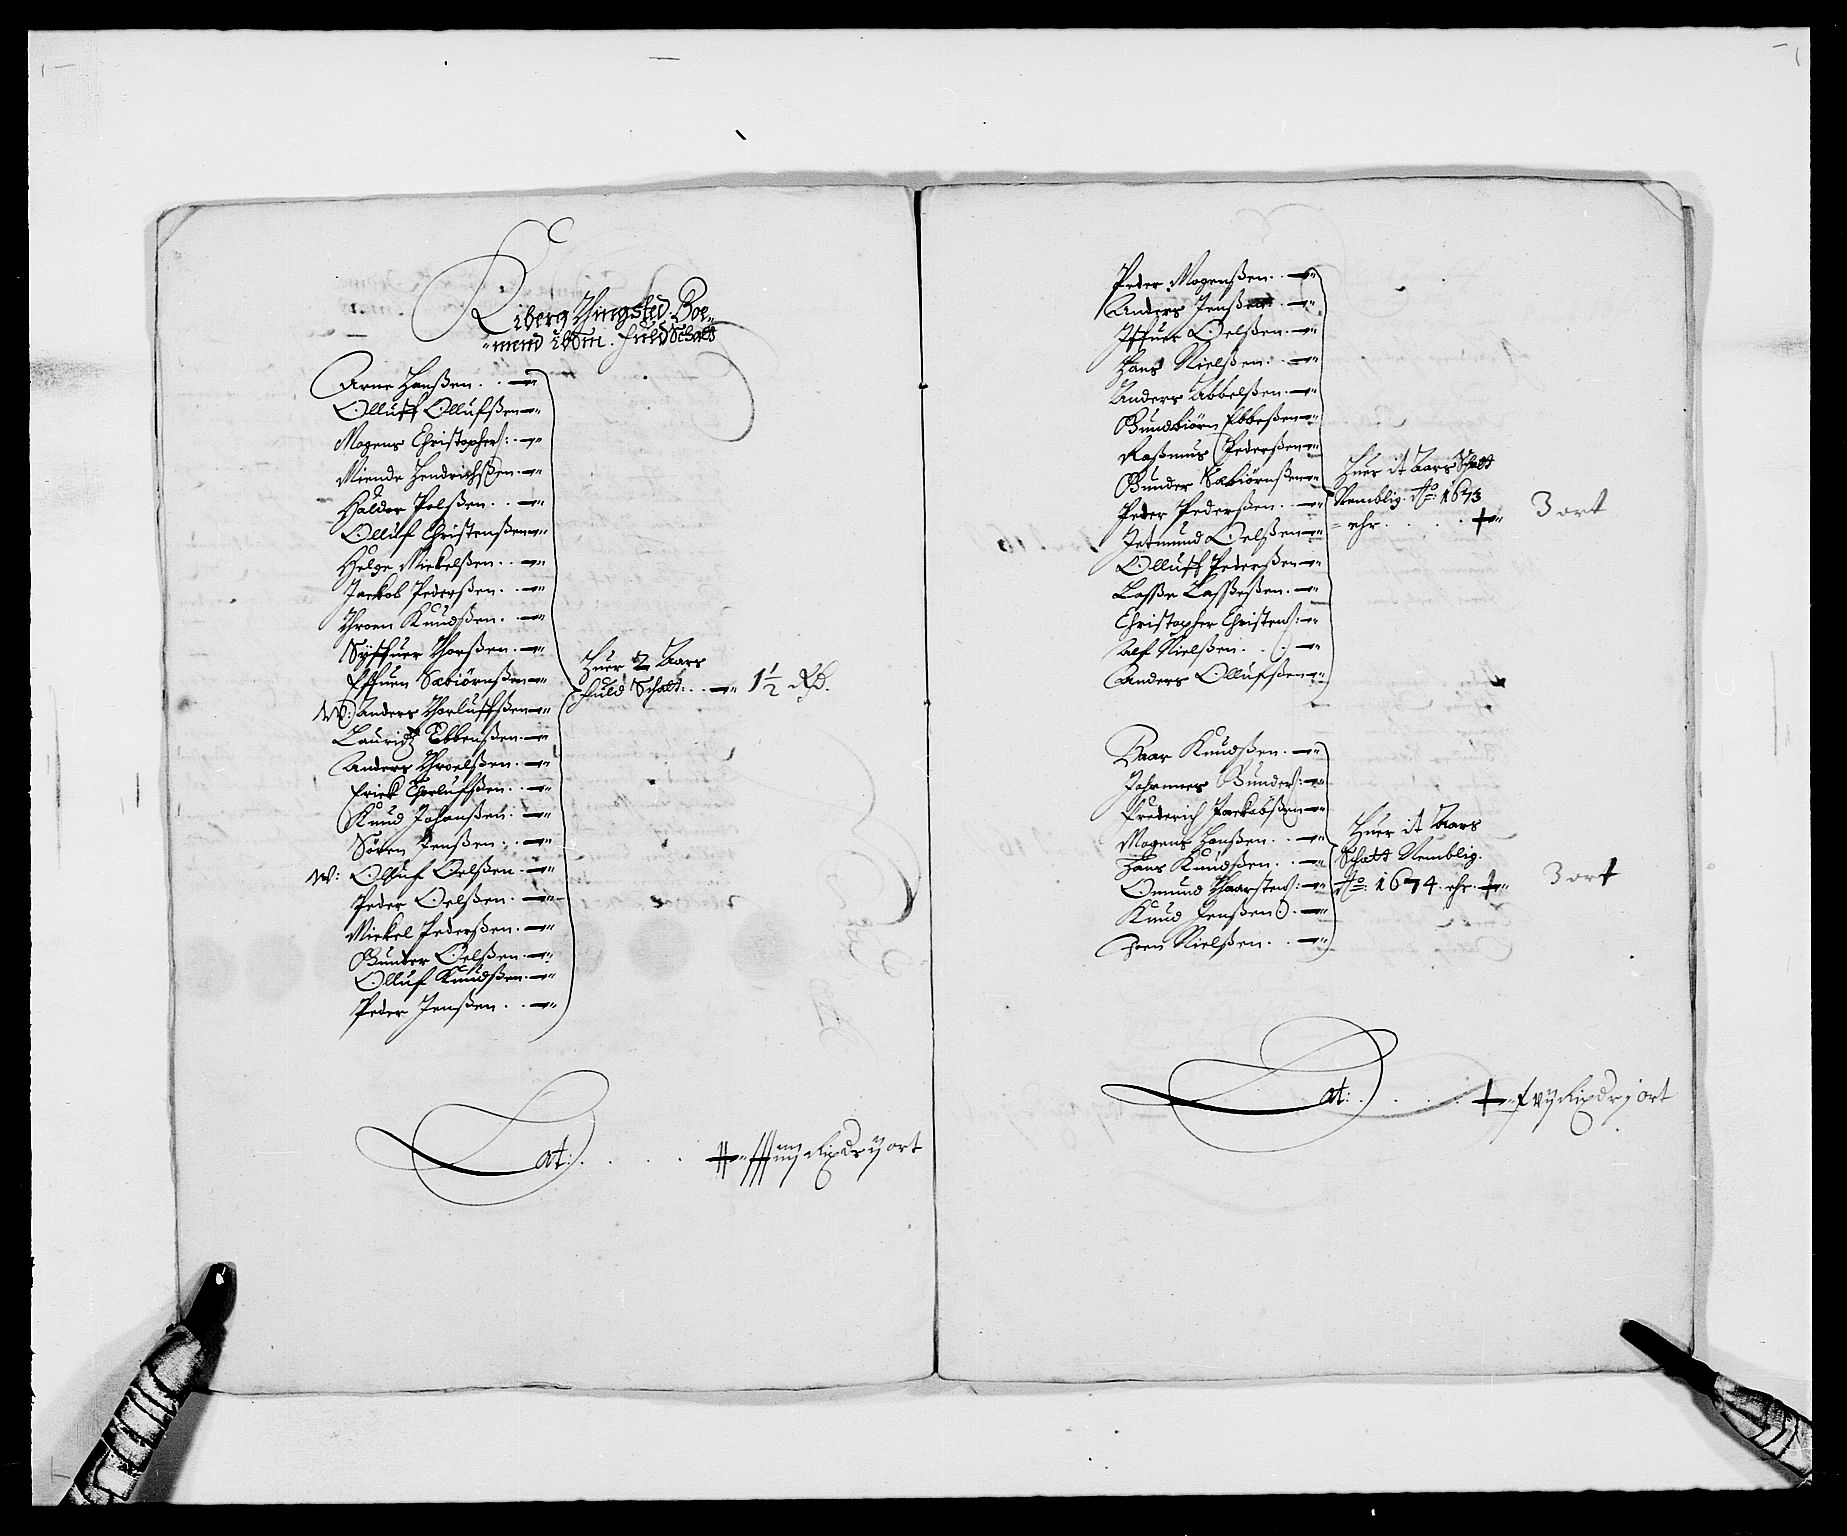 Kiberg Thingsted. Boe-
-mend ibm. fuld Schatt
Arne Hanßen
Olluff Ollufßen
Mogens Christophers:
Miende Hendrichßen
Haldor Polßen
Olluf Christenßen
Helge Mickelßen
Jackob Pederßen
Throen Knudßen
Syffuer Thorßen
Effuen Sæbiörnßen
W: Anders Thorluffßen
Lauridz Ebbenßen
Anders Throelßen
Erick Thorlufßen
Knud Johanßen
Sören Jenßen
W: Olluf Oelßen
Peder Oelßen
Mickel Pederßen
Gunder Oelßen
Olluf Knudßen
Peder Jenßen
Huer 2 Aars
fuld Schatt: 1½ Rd.
Lat: Rixdr ij ort
Peder Mogenßen
Anders Jenßen
Iffuer Oelßen
Hans Nielßen
Anders Abbelßen
Gundbiörn Ebbeßen
Raßmus Pederßen
Gunder Sæbiörnßen
Peder Pederßen
Jetmund Oelßen
Olluff Pederßen
Laße Laßeßen
Christopher Christens:
Alf Nielßen
Anders Ollufßen
Huer it Aars Schatt
Nemblig. Ao: 1673
ehr 3 ort
Baar Knudßen
Johannes Gunders:
Frederich Jackobßen
Mogens Hanßen
Hans Knudßen
Omund Thaarstens:
Knud Jenßen
Joen Nielßen
Huer it Aars
Schatt Nemblig.
Ao: 1674. ehr 3 ort
Lat: vij Rixdr j ort